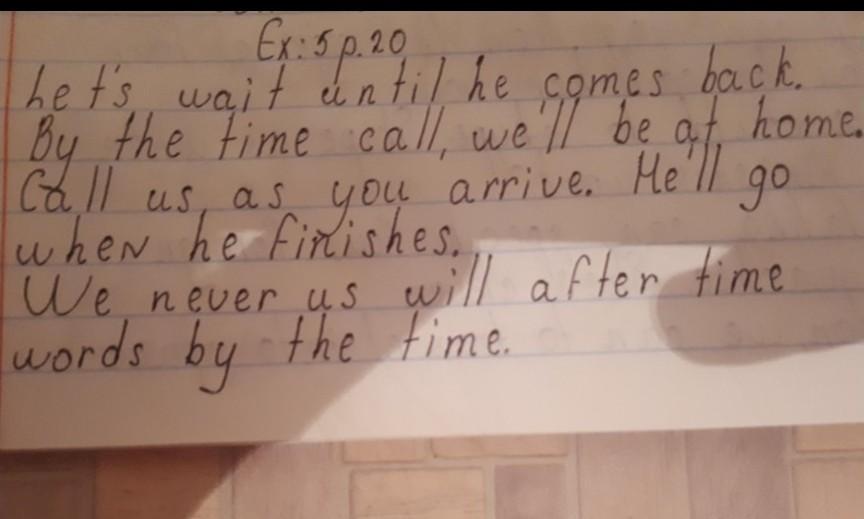 Ex: 5 p. 20
Let's wait until he comes back.
By the time call, we'll be at home.
Call us, as you arrive. He'll go
when he finishes.
We never us will after time
words by the time.